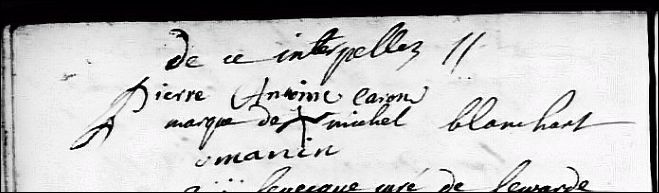 de ce interpellez //
Pierre Antoine Caron
marque de michel blanchart
omanin
curé de lewarde